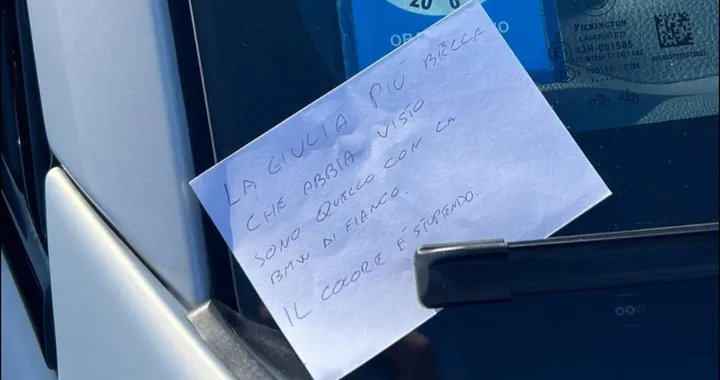 20 0
PILKINGTON
LAMINATED
43R-001586
LA GIULIA PIÙ BELLA
CHE ABBIA VISTO
SONO QUELLO CON LA
BMW DI FIANCO.
IL COLORE È STUPENDO...